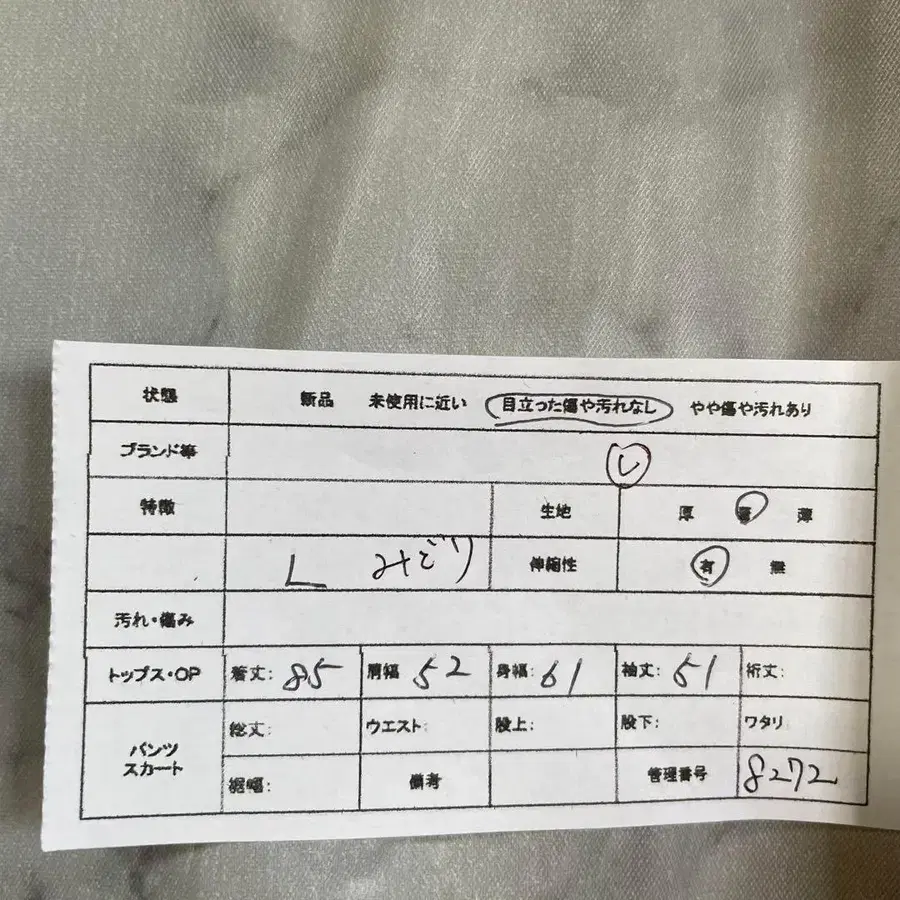 状態 新品 未使用に近い 目立った傷や汚れなし やや傷や汚れあり
ブランド等 レ
特徴 生地 厚 普 薄
L みどり 伸縮性 有 無
汚れ・傷み
トップス・OP 着丈: 85 肩幅 52 身幅: 61 袖丈: 51 裄丈:
パンツ スカート
総丈: ウエスト: 股上: 股下: ワタリ
裾幅: 備考 管理番号 8272